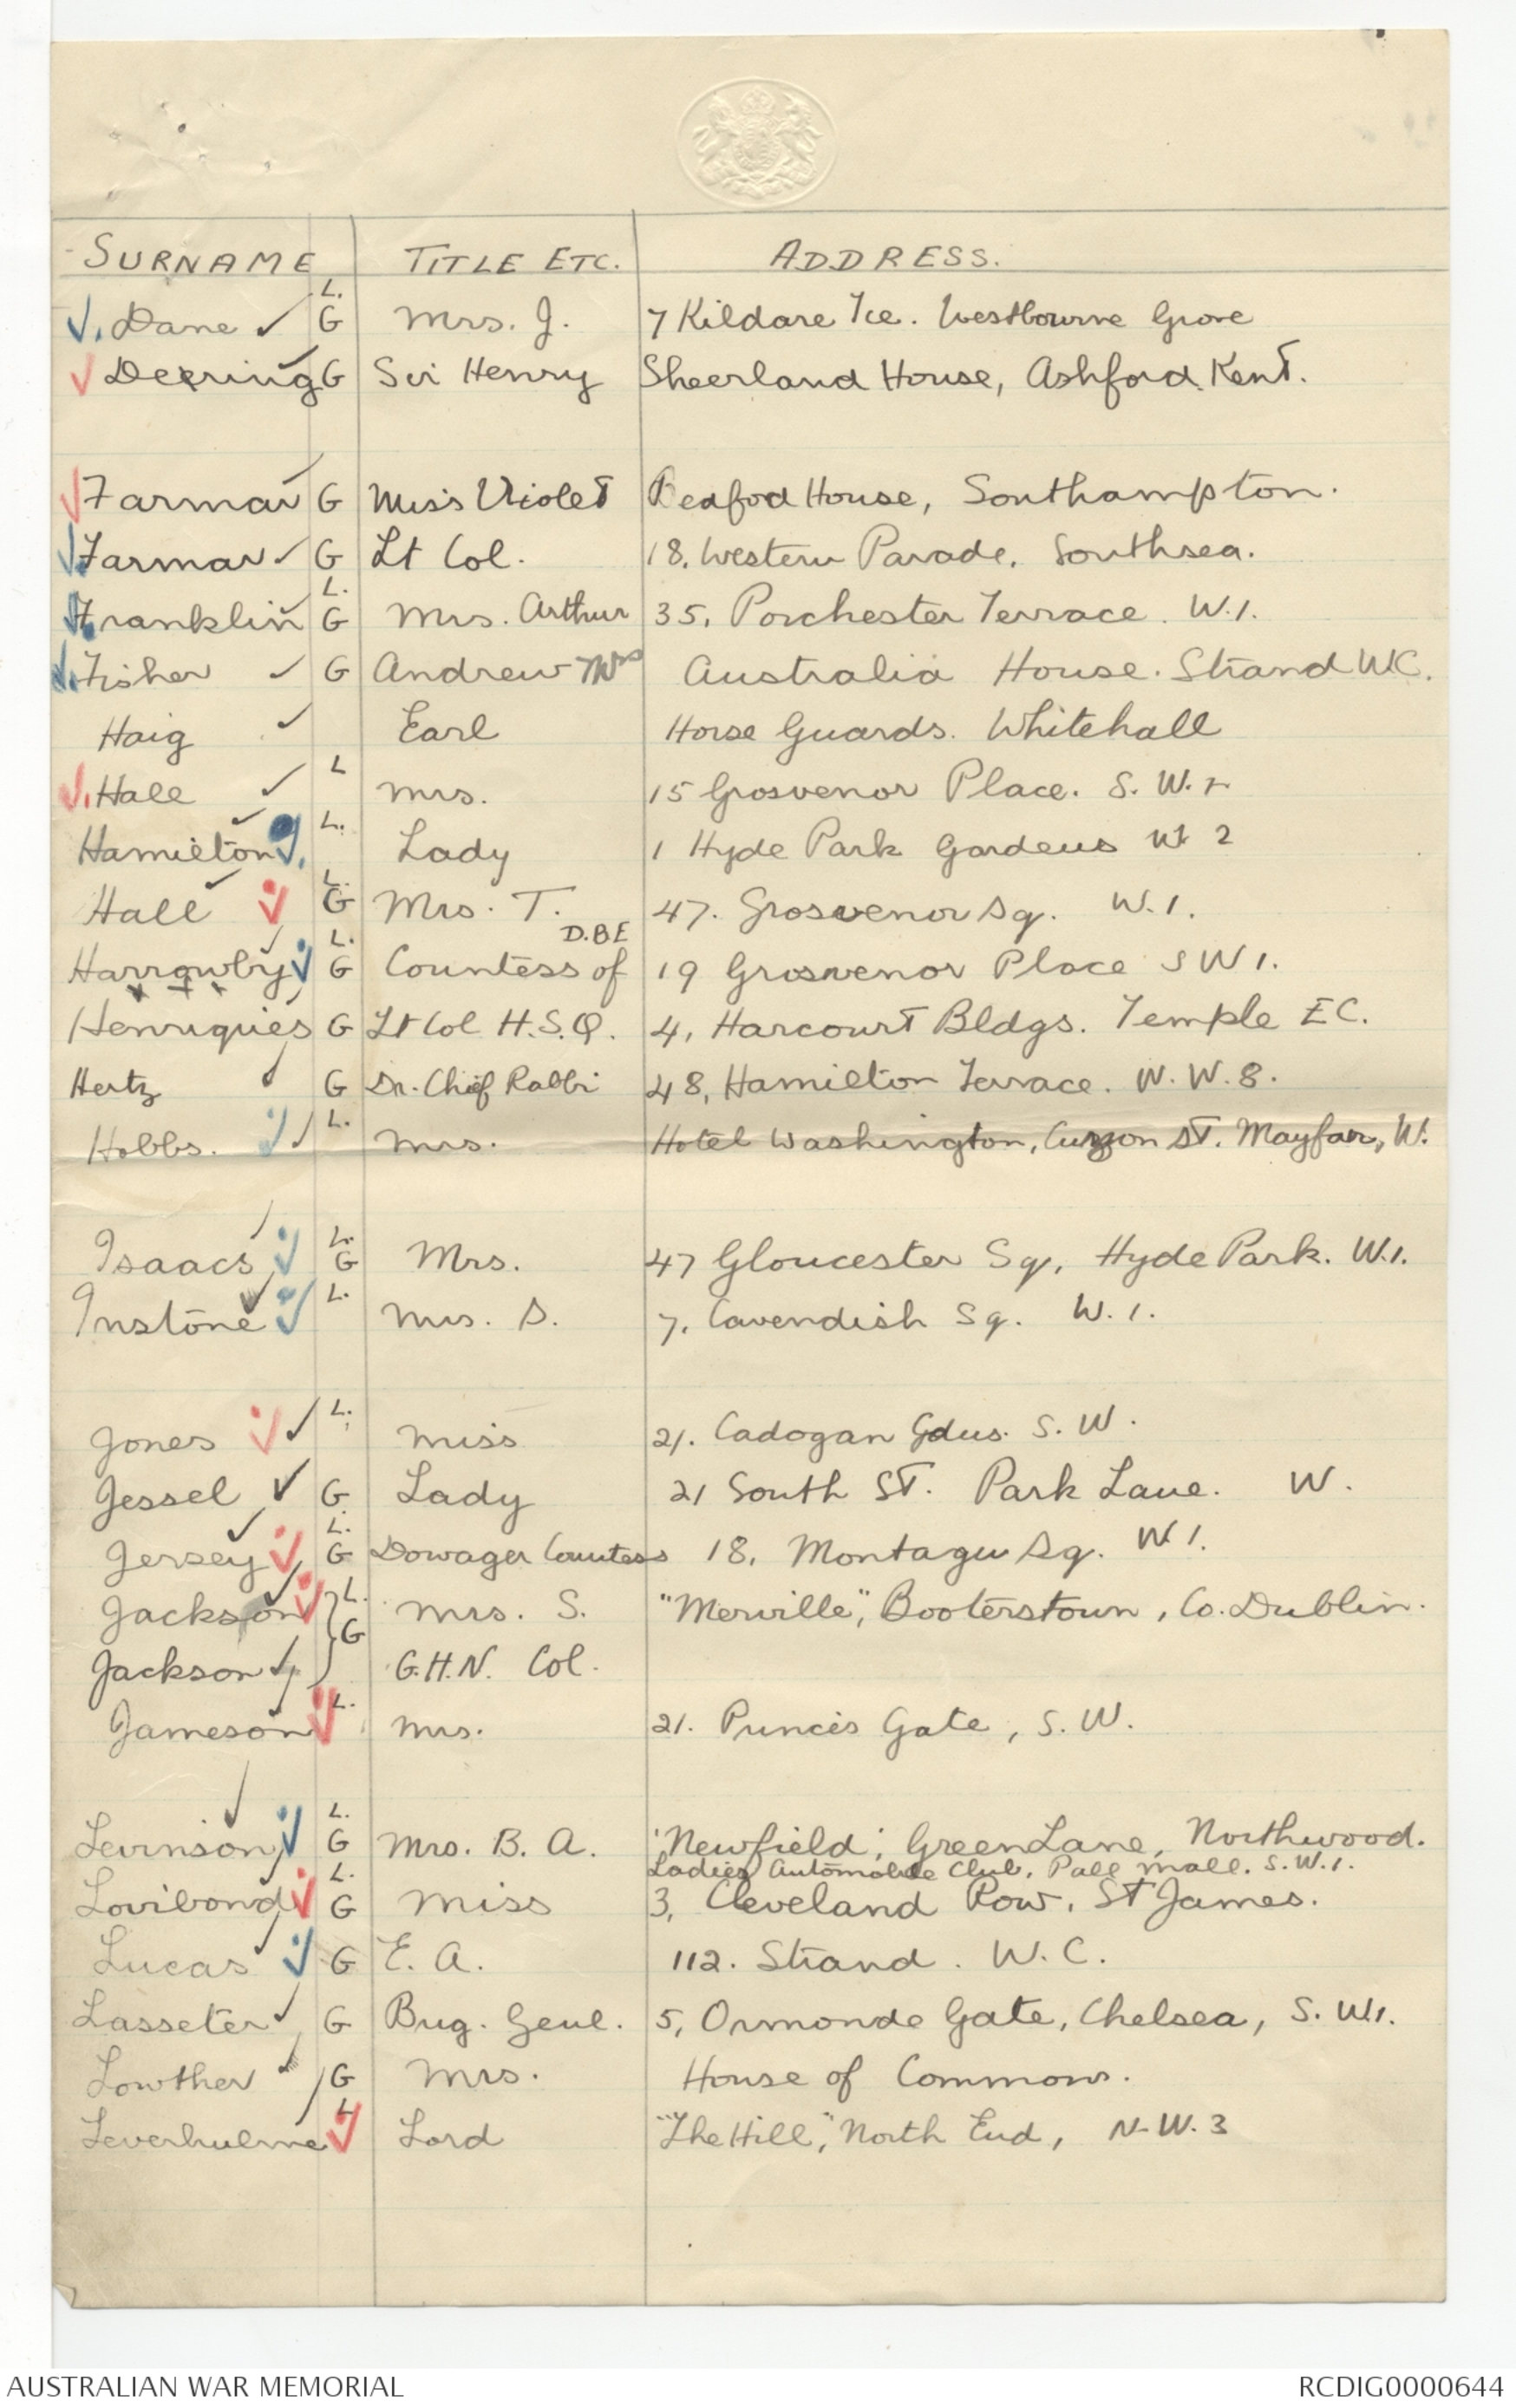 SURNAME TITLE ETC. ADDRESS.
L.
Dane G Mrs. J. 7 Kildare Tce. Westbourne Grove
Deering G Sir Henry Sheerland House, Ashford Kent.
Farmar G Miss Violet Bedford House, Southampton.
Farmar G Lt Col. 18, Western Parade, Southsea.
L.
Franklin G Mrs. Arthur 35, Porchester Terrace. W.1.
Fisher G Andrew Mrs Australia House. Strand WC.
Haig Earl Horse Guards. Whitehall
Hall L Mrs. 15 Grosvenor Place. S.W.1
Hamilton L. Lady 1 Hyde Park Gardens W 2
L.
Hall G Mrs. T. 47. Grosvenor Sq. W.1.
L. D.B.E
Harrowby G Countess of 19 Grosvenor Place SW1.
Henriques G Lt Col H.S.Q. 4, Harcourt Bldgs. Temple EC.
Hertz G Dr. Chief Rabbi 48, Hamilton Terrace. N.W.8.
Hobbs. L. Mrs. Hotel Washington, Curzon St. Mayfair, W.
L.
Isaacs G Mrs. 47 Gloucester Sq, Hyde Park. W.1.
Instone L. Mrs. S. 7, Cavendish Sq. W.1.
Jones L. Miss 21. Cadogan Gdns. S.W.
Jessel G Lady 21 South St. Park Lane. W.
L.
Jersey G Dowager Countess 18, Montagu Sq. W1.
Jackson L. G Mrs. S. "Merville", Booterstown, Co. Dublin.
Jackson G.H.N. Col.
Jameson L. Mrs. 21. Princes Gate, S.W.
L.
Levinson G Mrs. B. A. 'Newfield', Green Lane, Northwood.
L. Ladies Automobile Club, Pall Mall. S.W.1.
Lovibond G Miss 3, Cleveland Row, St James.
Lucas G E. A. 112. Strand. W.C.
Lasseter G Brig. Genl. 5, Ormonde Gate, Chelsea, S.W1.
Lowther G Mrs. House of Commons.
Leverhulme L Lord "The Hill", North End, N.W.3
AUSTRALIAN WAR MEMORIAL RCDIG0000644